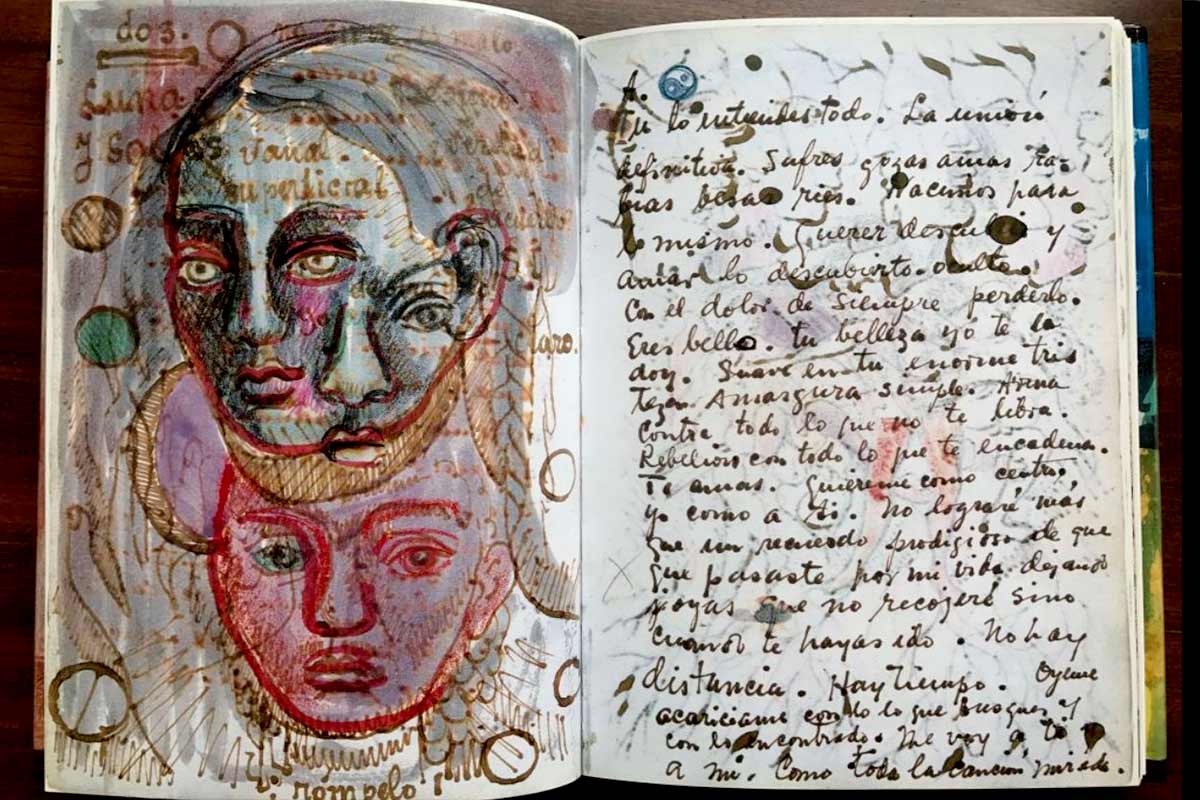 dos.
Luna.
Sur perficial
rompelo
A.
Tu lo entiendes todo. La unión
definitiva. Sufres gozas amas ra-
bias besas ries. Nacimos para
lo mismo. Querer descubrir y
amar lo descubierto. oculto.
Con el dolor de siempre perderlo.
Eres bello. tu belleza yo te la
doy. Suave en tu enorme tris
teza. Amargura simple. Arma
contra todo lo que no te libra.
Rebelion con todo lo que te encadena.
Te amas. quiereme como centro.
yo como a ti. No lograré más
que un recuerdo prodigioso de que
que pasaste por mi vida dejando
joyas que no recojeré sino
cuando te hayas ido. No hay
distancia. Hay tiempo. Oyeme
acariciame con lo que busques y
con lo encontrado. Me voy a ti y
a mi. Como toda la canción mirada.